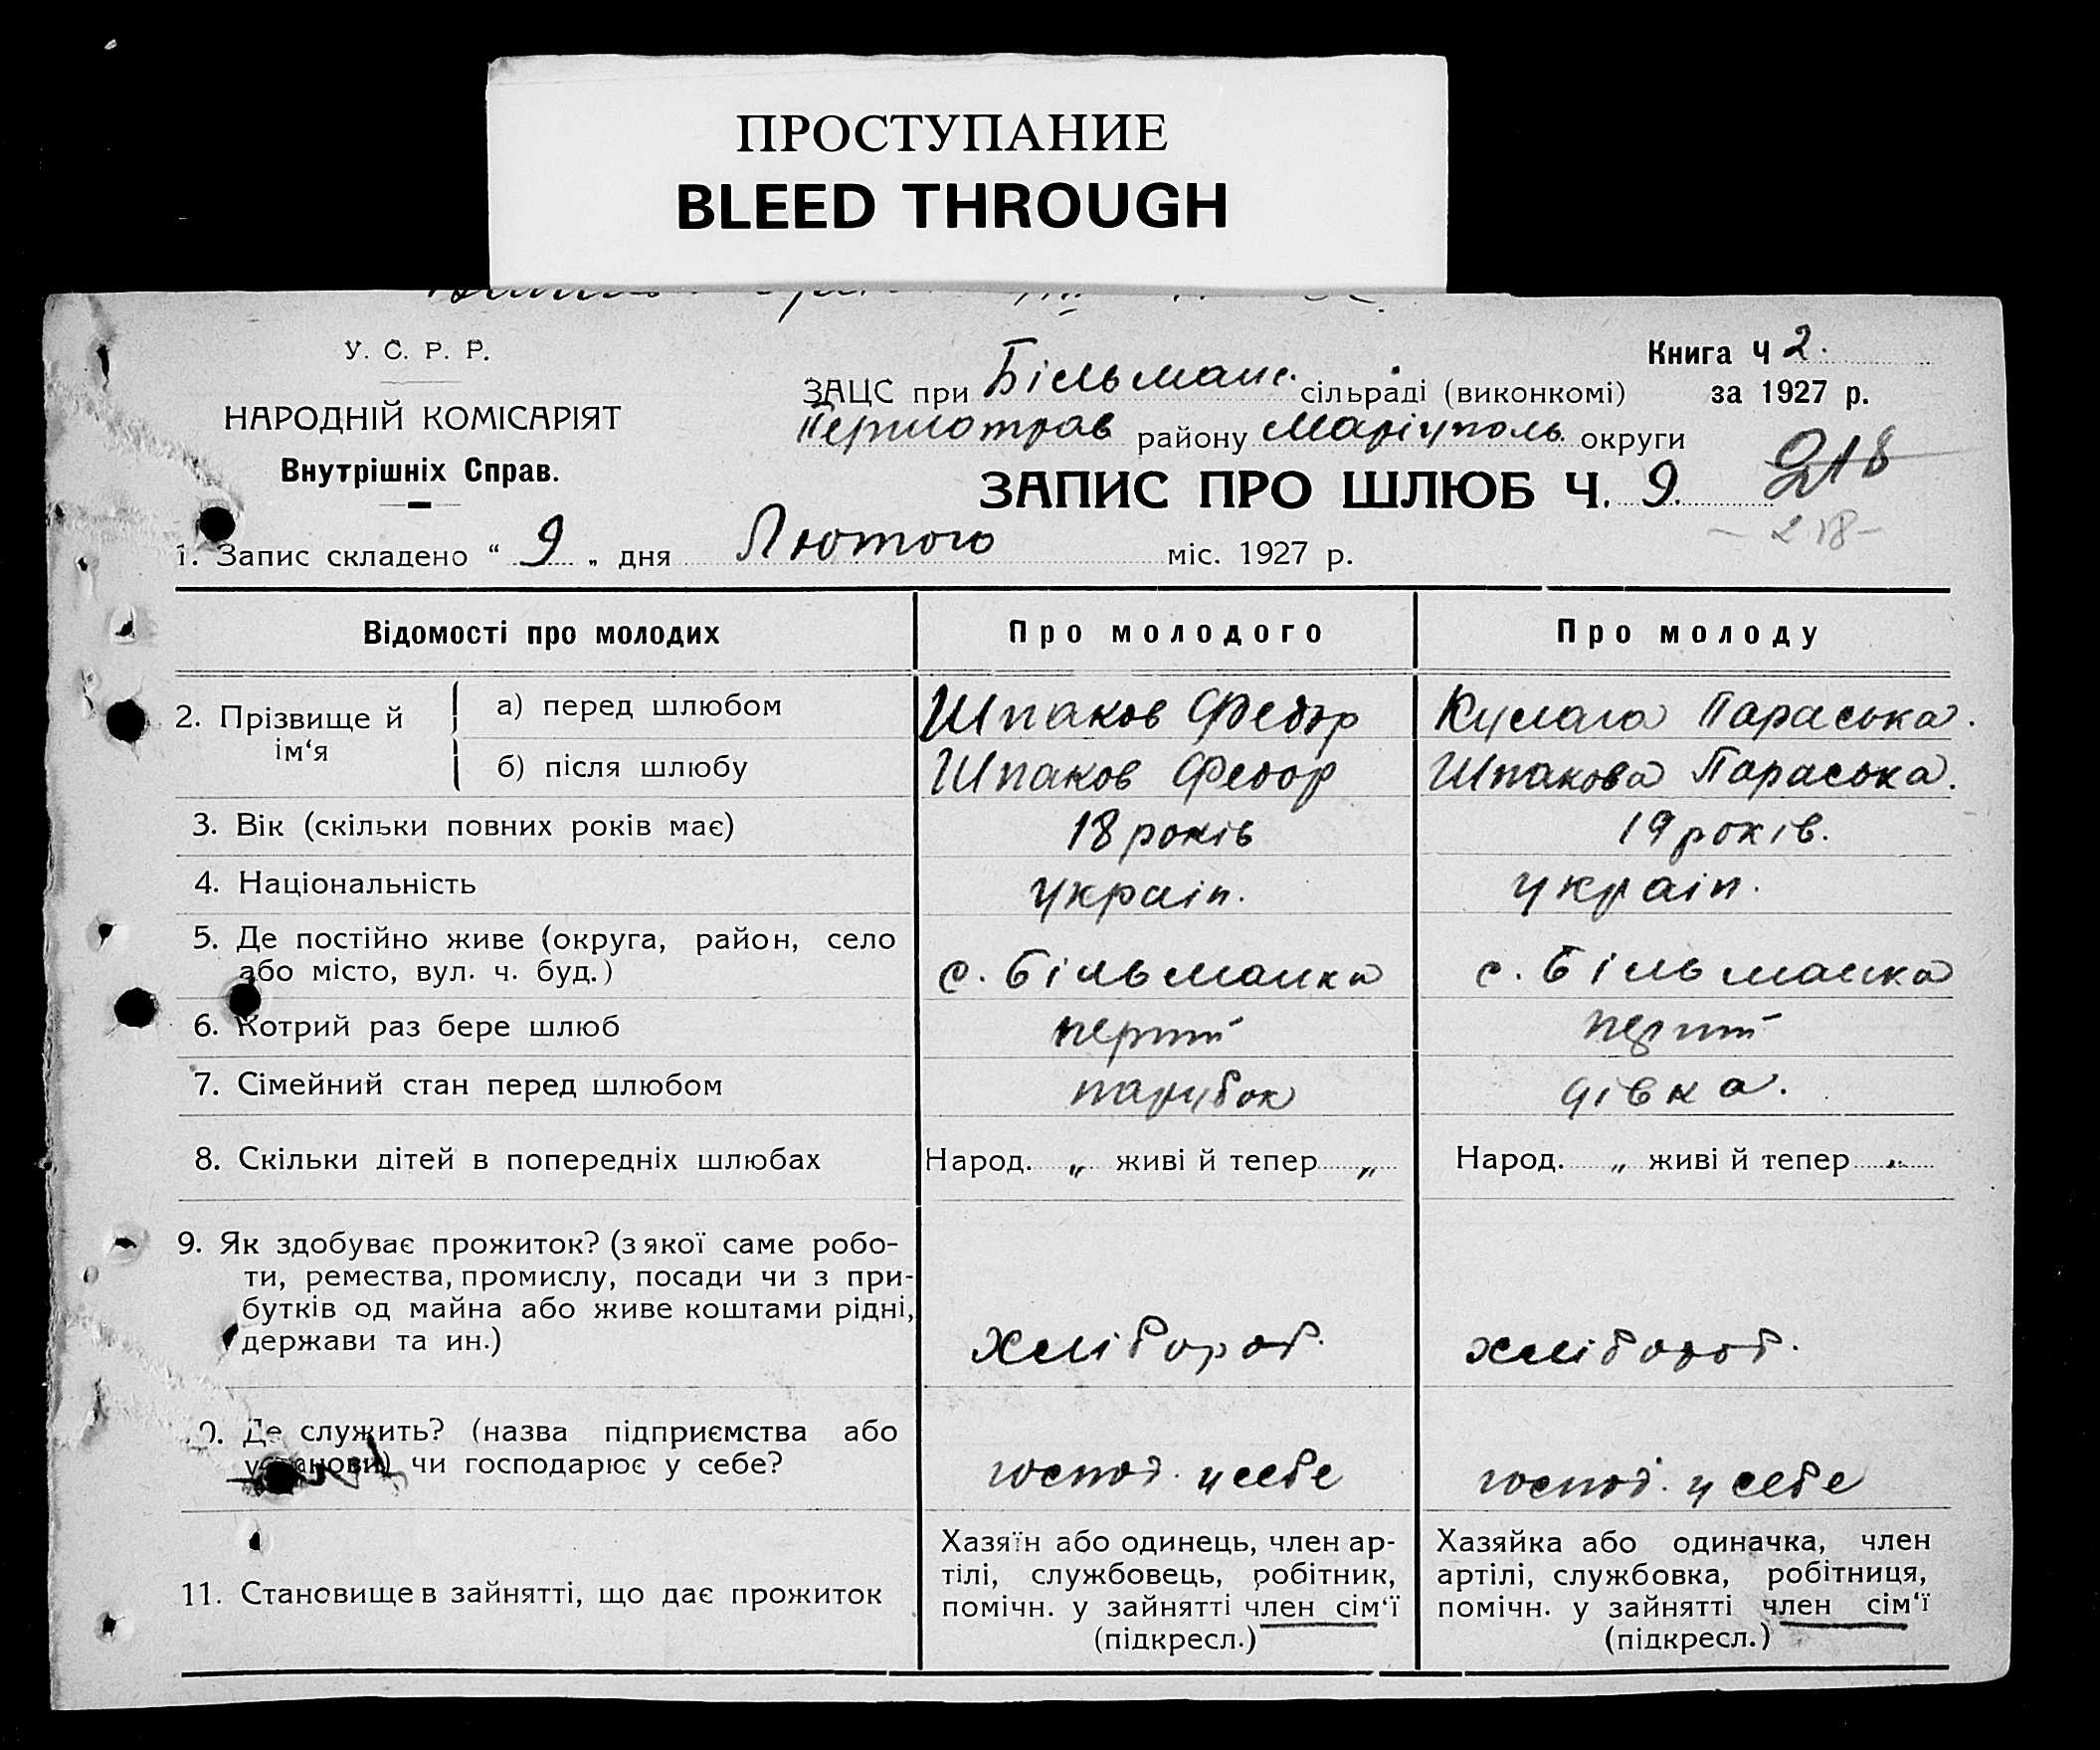 ПРОСТУПАНИЕ
BLEED THROUGH
У. С. Р. Р.
НАРОДНІЙ КОМІСАРІЯТ
Внутрішніх Справ.
Книга Ч 2.
за 1927 р.
ЗАЦС при Більманс. сільраді (виконкомі)
Першотрав району Маріуполь округи
ЗАПИС ПРО ШЛЮБ Ч. 9.
218
- 218 -
1. Запис складено “ 9 „ дня Лютого міс. 1927 р.
Відомості про молодих Про молодого Про молоду
2. Прізвище й ім‘я
а) перед шлюбом Шпаков Федор Кулага Параська.
б) після шлюбу Шпаков Федор Шпакова Параська.
3. Вік (скільки повних років має) 18 років 19 років.
4. Національність україн. україн.
5. Де постійно живе (округа, район, село
або місто, вул. ч. буд.) с. Більманка с. Більманка
6. Котрий раз бере шлюб перший перший
7. Сімейний стан перед шлюбом парубок дівка.
8. Скільки дітей в попередніх шлюбах Народ. „ живі й тепер „ Народ. „ живі й тепер „
9. Як здобуває прожиток? (з якої саме робо-
ти, ремества, промислу, посади чи з при-
бутків од майна або живе коштами рідні,
держави та ин.) хлібороб. хлібороб.
10. Де служить? (назва підприємства або
установи) чи господарює у себе? господ. у себе господ. у себе
11. Становище в зайнятті, що дає прожиток
Хазяїн або одинець, член ар-
тілі, службовець, робітник,
помічн. у зайнятті член сім‘ї
(підкресл.)
Хазяйка або одиначка, член
артілі, службовка, робітниця,
помічн. у зайнятті член сім‘ї
(підкресл.)